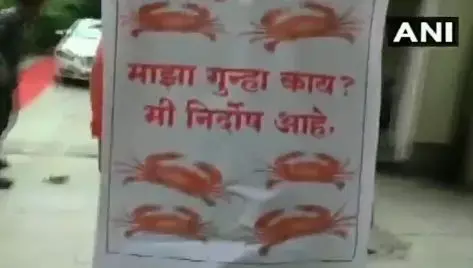 ANI
माझा गुन्हा काय?
मी निर्दोष आहे.